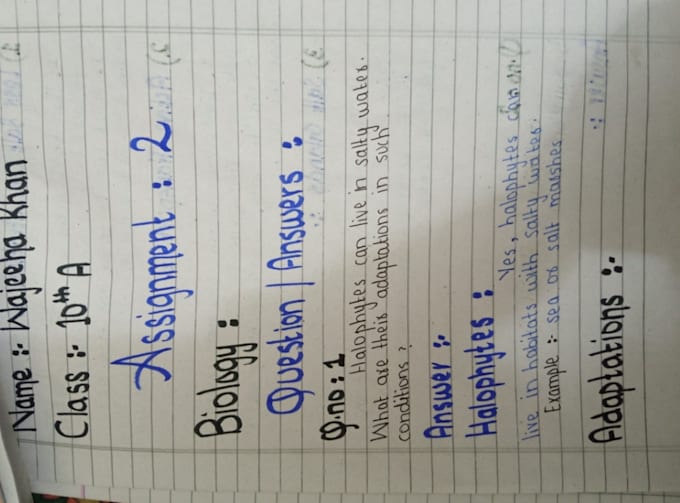 Name :- Wajeeha Khan
Class :- 10th A
Assignment : 2
Biology :
Question | Answers :
Q.no : 1
Halophytes can live in salty water.
What are their adaptations in such
conditions ?
Answer :-
Halophytes :
Yes, halophytes can
live in habitats with salty water.
Example :- sea or salt marshes
Adaptations :-